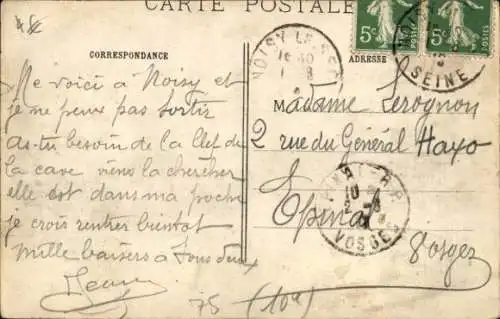 CARTE POSTALE
CORRESPONDANCE
ADRESSE
NOISY LE SEC
5c
5c
POSTES
SEINE
Me voici à Noisy et
je ne peux pas sortir
as-tu besoin de la clef de
la cave viens la chercher
elle est dans ma poche
je crois rentrer bientot
Mille baisers à tous deux
Jean
Madame Perognon
2 rue du Général Haxo
Epinal
Vosges
EPINAL
VOSGES
75 (10e)